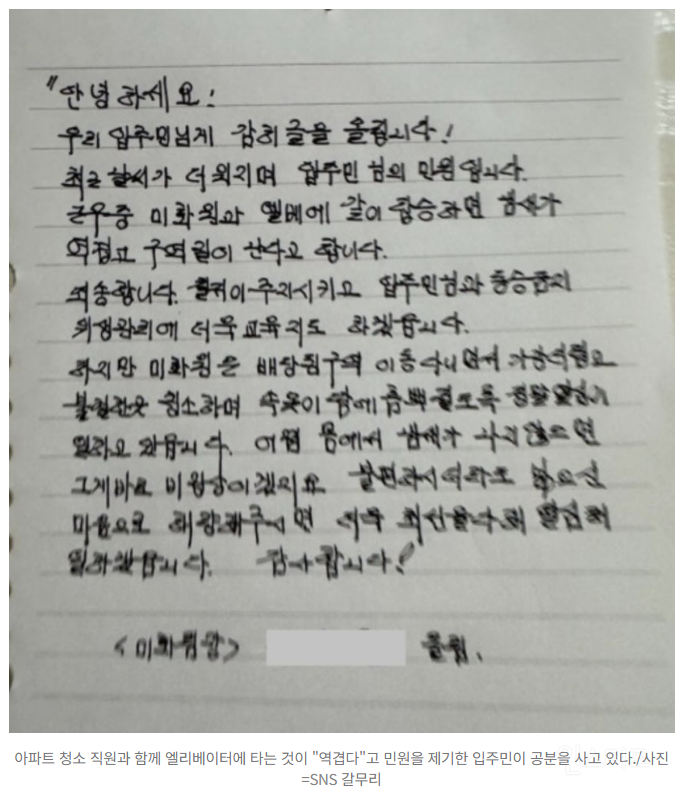 "안녕하세요!
우리 입주민님께 감히 글을 올립니다!
최근 날씨가 더워지며 입주민 님의 민원입니다.
근무중 미화원과 엘베에 같이 탑승하면 땀새가
역겹고 구역질이 난다고 합니다.
죄송합니다. 철저히 주지시키고 입주민님과 동승금지
위생관리에 더욱 교육지도 하겠습니다.
하지만 미화원은 배당된구역 이동 다니면서
청소하며 속옷이 땀에 흠뻑 젖도록 정말 열심히
일하고 있습니다. 어찌 몸에서 땀새가 나지않으면
그게바로 비정상이겠지요 불편하시더라도 넓으신
마음으로 해량해주시면 더욱 최선을다해 열심히
일하겠습니다. 감사합니다!
<미화팀장> 올림.
아파트 청소 직원과 함께 엘리베이터에 타는 것이 "역겹다"고 민원을 제기한 입주민이 공분을 사고 있다./사진
=SNS 갈무리